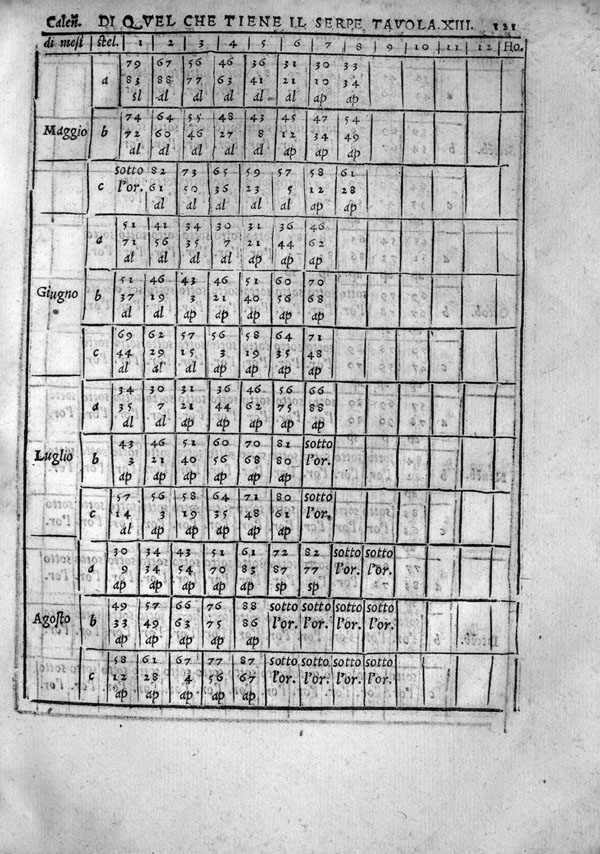 Calen. DI QVEL CHE TIENE IL SERPE TAVOLA.XIII. 121
di mesi stel. 1 2 3 4 5 6 7 8 9 10 11 12 Ho.
79 67 56 46 36 31 30 33
a 83 88 77 63 41 21 10 34
sl al al al al al ap ap
74 64 55 48 43 45 47 54
Maggio b 72 60 46 27 8 12 34 49
al al al al al ap ap ap
sotto 82 73 65 59 57 58 61
c l'or. 61 50 36 23 5 12 28
al al al al al ap ap
51 41 34 30 31 36 46
a 71 56 35 7 21 44 62
al al al al ap ap ap
51 46 43 46 51 60 70
Giugno b 37 19 3 21 40 56 68
al al ap ap ap ap ap
69 62 57 56 58 64 71
c 44 29 15 3 19 35 48
al al al ap ap ap ap
34 30 31 36 46 56 66
a 35 7 21 44 62 75 88
al al ap ap ap ap ap
43 46 51 60 70 81 sotto
Luglio b 3 21 40 56 68 80 l'or.
ap ap ap ap ap ap
57 56 58 64 71 80 sotto
c 14 3 19 35 48 61 l'or.
al ap ap ap ap ap
30 34 43 51 61 72 82 sotto sotto
a 9 34 54 70 83 87 77 l'or. l'or.
ap ap ap ap ap sp sp
49 57 66 76 88 sotto sotto sotto sotto
Agosto b 33 49 63 75 86 l'or. l'or. l'or. l'or.
ap ap ap ap ap
58 61 67 77 87 sotto sotto sotto sotto
c 12 28 4 56 67 l'or. l'or. l'or. l'or.
ap ap ap ap ap